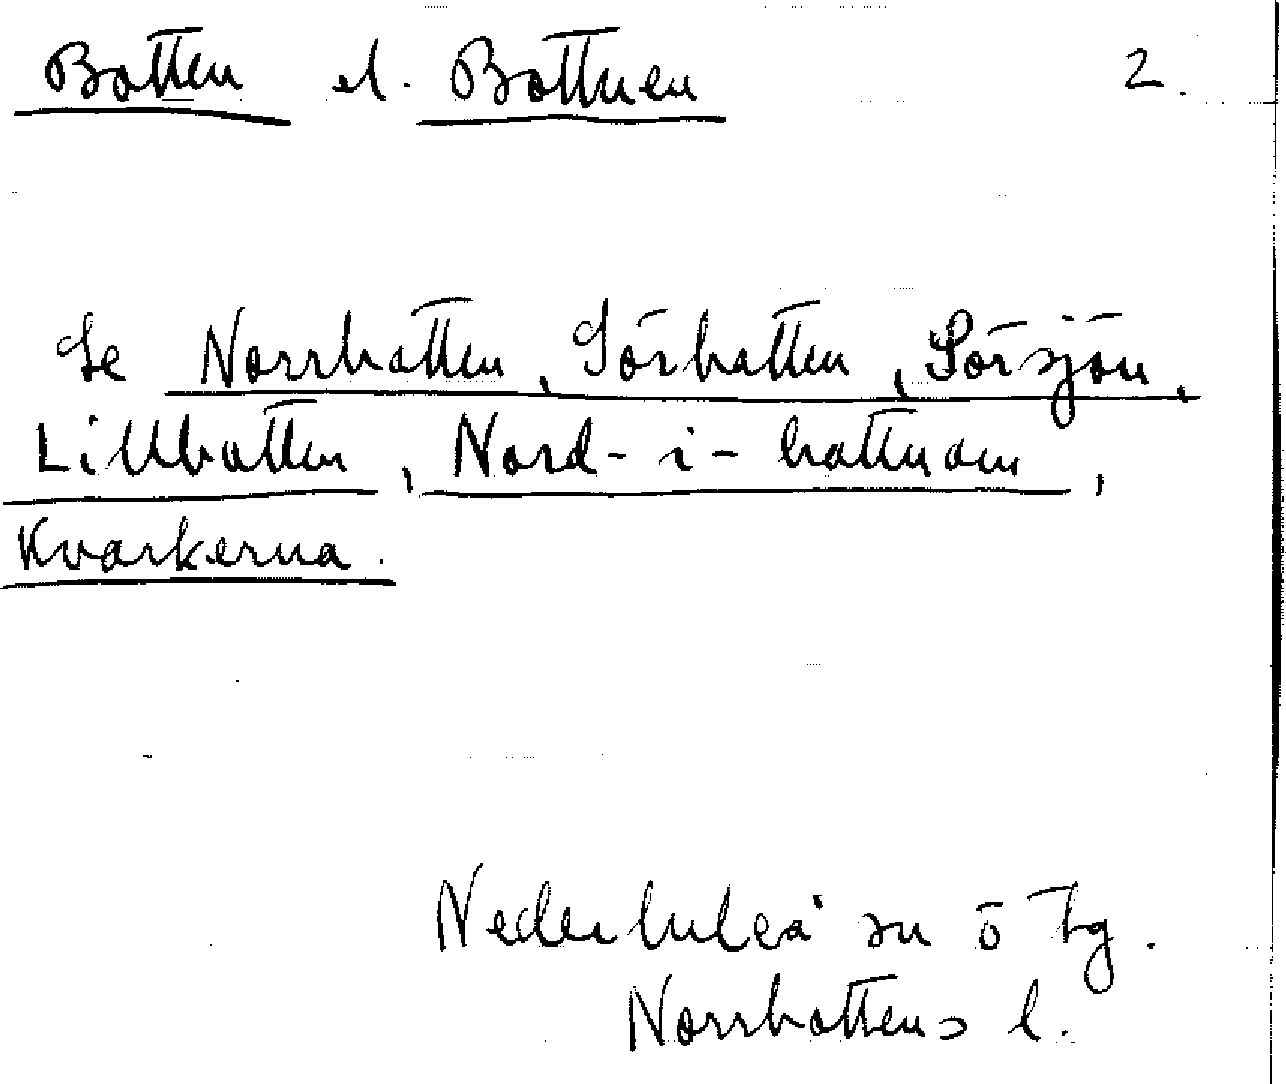 Botten el. Bottnen 2.
Se Norrbotten, Sörbotten, Sörsjön,
Lillbotten, Nord-i-bottnom,
Kvarkerna.
Nederluleå sn ö Tg.
Norrbottens l.